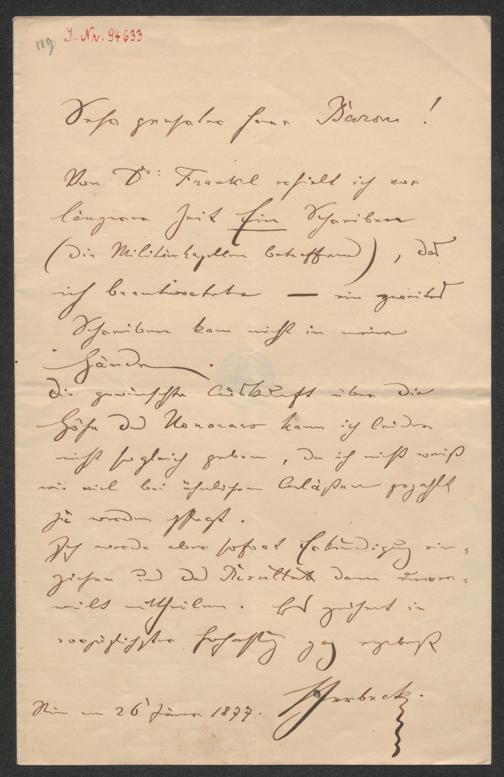 119
I. Nr. 94633
Sehr geehrter Herr Baron!
Von Dr: Frankl erhielt ich vor
längerer Zeit Ein Schreiben
(die Militärkapellen betreffend), das
ich beantwortete — ein zweites
Schreiben kam nicht in meine
Hände.
Die gewünschte Auskunft über die
Höhe des Honorars kann ich leider
nicht sogleich geben, da ich nicht weiß
wie viel bei ähnlichen Anläßen gezahlt
zu werden pflegt.
Ich werde aber sofort Erkundigung ein-
ziehen und das Resultat dann
mittheilen. Es zeichnet in
vorzüglichster Hochachtung ergebenst
Herbeck.
Wien am 26 Jänner 1877.